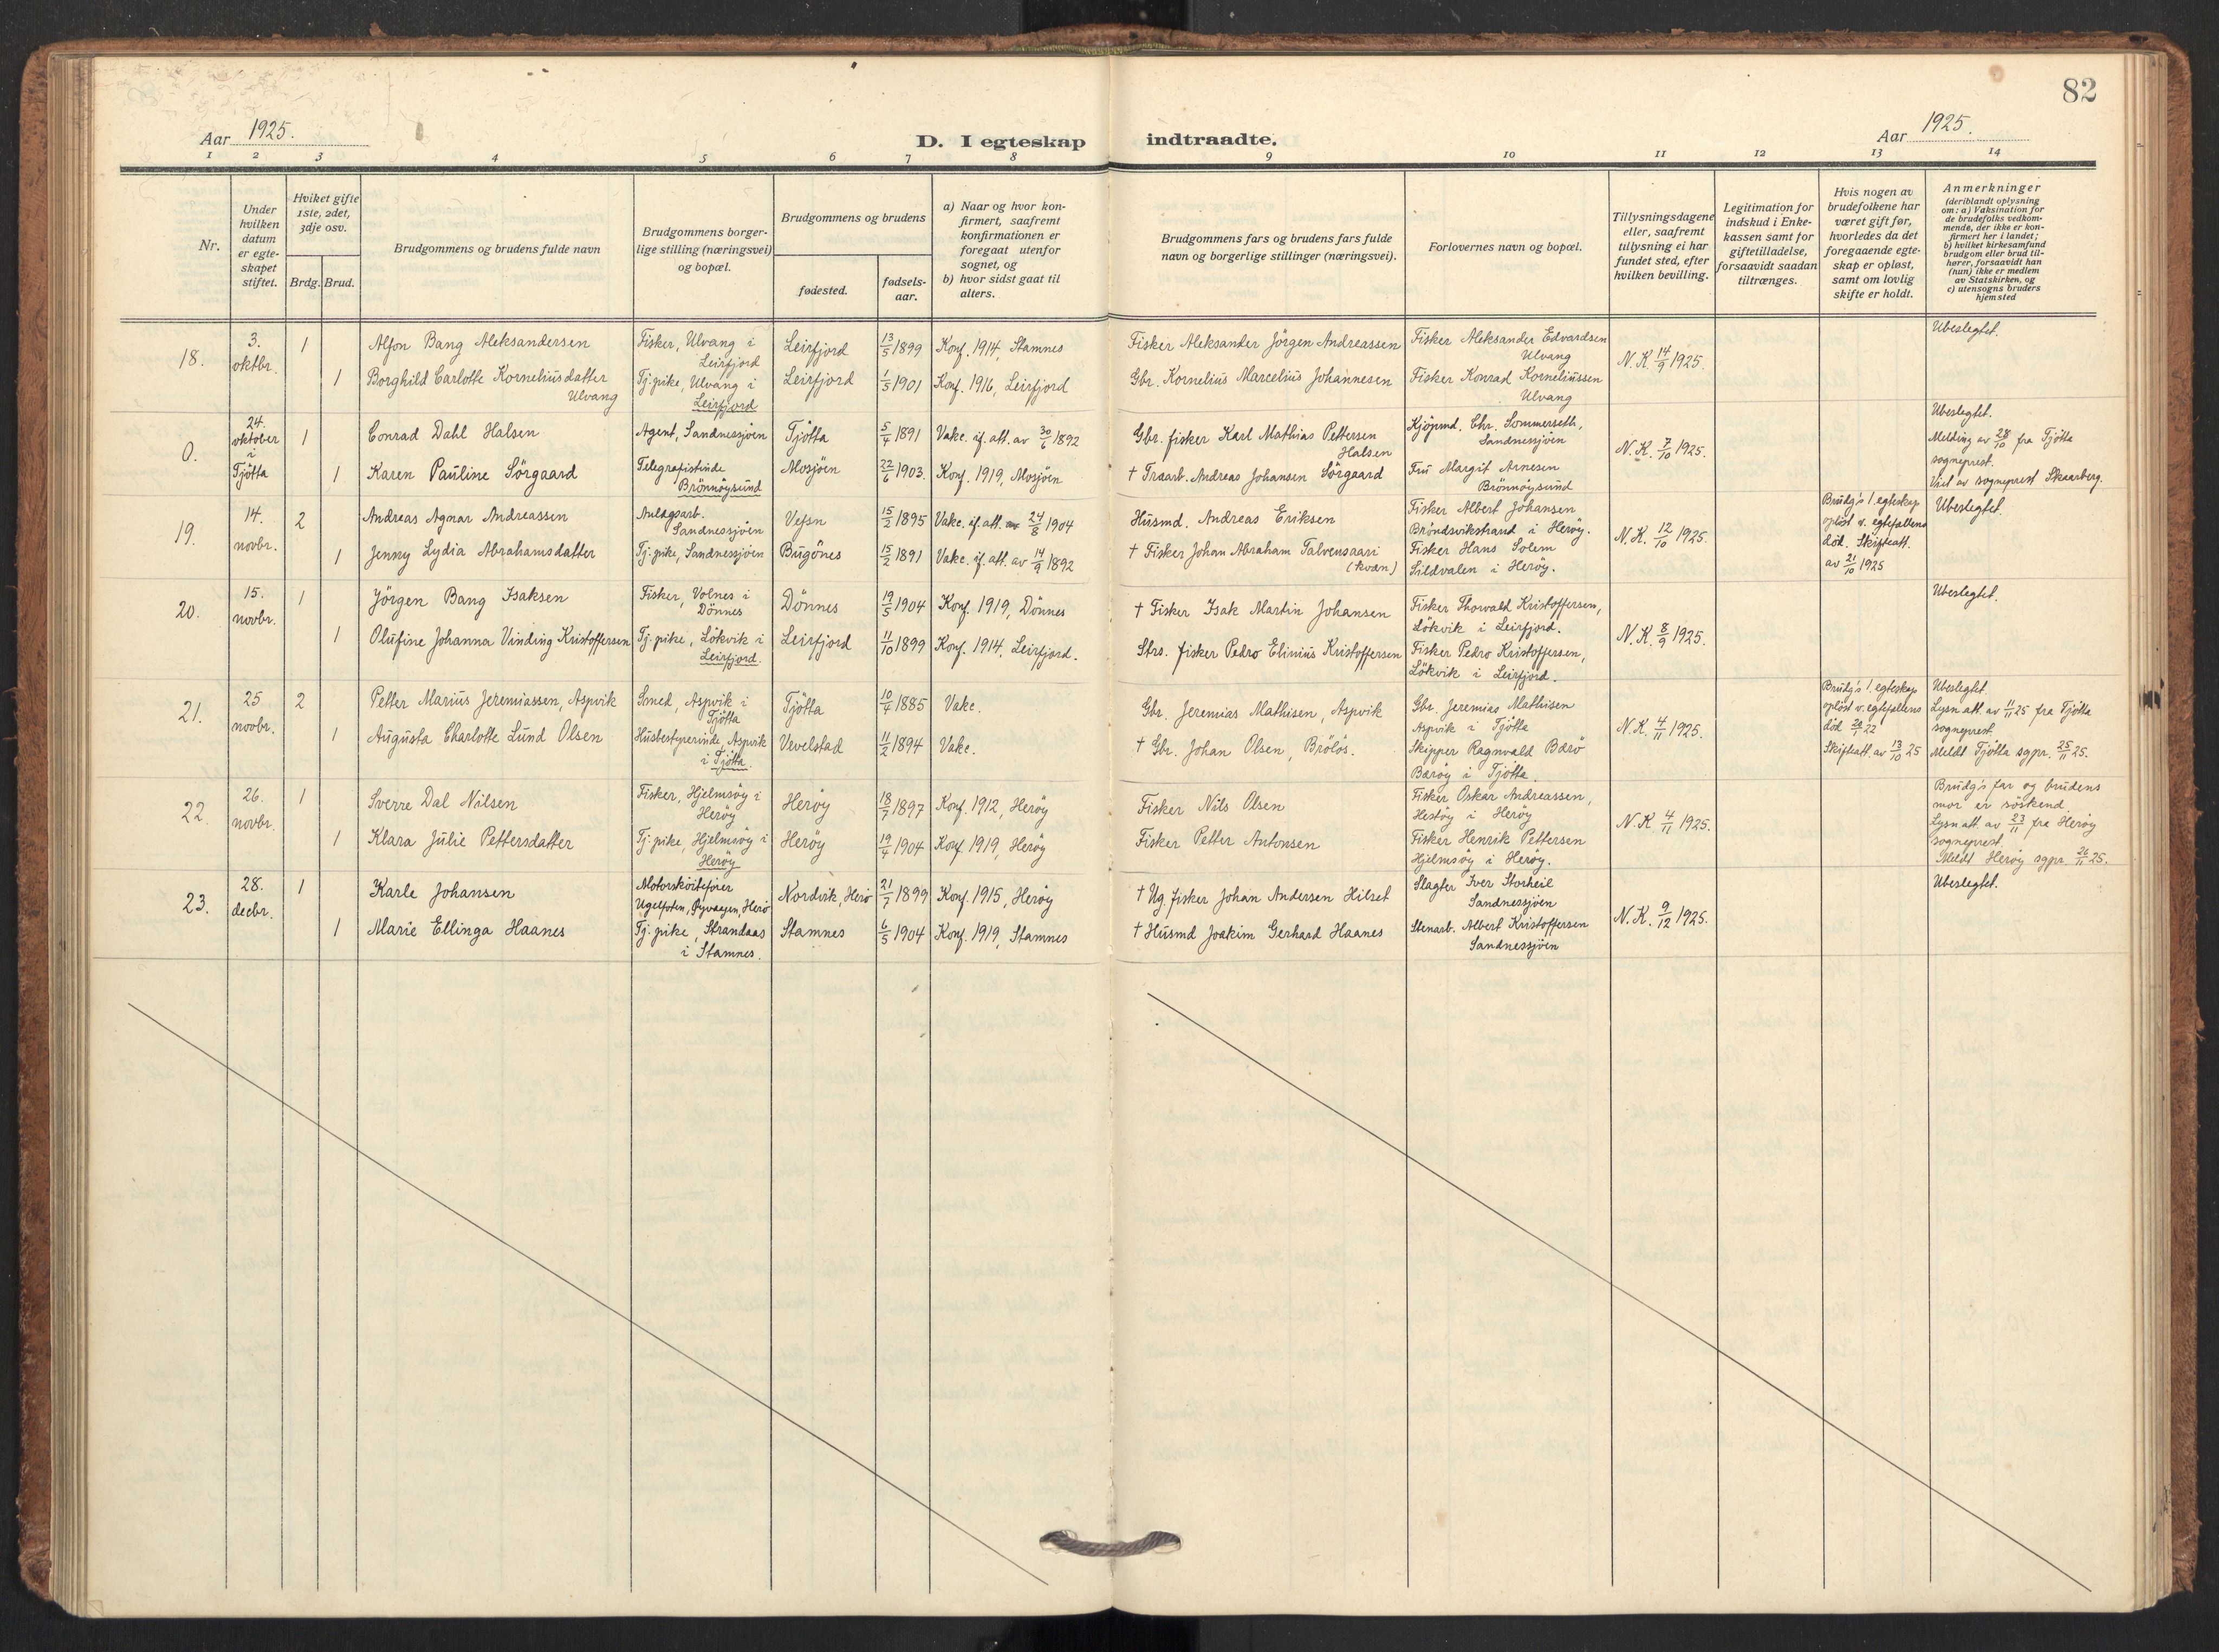 82
Aar 1925.
D. I egteskap indtraadte.
Aar 1925.
1 2 3 4 5 6 7 8 9 10 11 12 13 14
Nr.
Under
hvilken
datum
er egte-
skapet
stiftet.
Hviket gifte
1ste, 2det,
3dje osv.
Brdg. Brud.
Brudgommens og brudens fulde navn
Brudgommens borger-
lige stilling (næringsvei)
og bopæl.
Brudgommens og brudens
fødested.
fødsels-
aar.
a) Naar og hvor kon-
firmert, saafremt
konfirmationen er
foregaat utenfor
sognet, og
b) hvor sidst gaat til
alters.
Brudgommens fars og brudens fars fulde
navn og borgerlige stillinger (næringsvei).
Forlovernes navn og bopæl.
Tillysningsdagene
eller, saafremt
tillysning ei har
fundet sted, efter
hvilken bevilling.
Legitimation for
indskud i Enke-
kassen samt for
giftetilladelse,
forsaavidt saadan
tiltrænges.
Hvis nogen av
brudefolkene har
været gift før,
hvorledes da det
foregaaende egte-
skap er opløst,
samt om lovlig
skifte er holdt.
Anmerkninger
(deriblandt oplysning
om: a) Vaksination for
de brudefolks vedkom-
mende, der ikke er kon-
firmert her i landet;
b) hvilket kirkesamfund
brudgom eller brud til-
hører, forsaavidt han
(hun) ikke er medlem
av Statskirken, og
c) utensogns bruders
hjemsted
18.
3.
oktbr.
1
Alfon Bang Aleksandersen
Fisker, Ulvang i
Leirfjord
Leirfjord
13/5 1899
Konf. 1914, Stamnes
Fisker Aleksander Jörgen Andreassen
Fisker Aleksander Edvardsen
Ulvang
N.K. 14/9 1925.
Ubeslegtet.
1
Borghild Carlotte Korneliusdatter
Ulvang
Tj.pike, Ulvang i
Leirfjord
Leirfjord
1/5 1901
Konf. 1916, Leirfjord
Gbr. Kornelius Marcelius Johannesen
Fisker Konrad Korneliussen
Ulvang
0.
24.
oktober
i
Tjötta
1
Conrad Dahl Halsen
Agent, Sandnessjöen
Tjötta
5/4 1891
Vakc. if. att. av 30/6 1892
Gbr. fisker Karl Mathias Pettersen
Halsen
Kjöpmd. Chr. Sommerseth,
Sandnessjöen
N.K. 7/10 1925.
Ubeslegtet.
Melding av 28/10 fra Tjötta
sogneprest.
Viet av sogneprest Skaarberg.
1
Karen Pauline Sörgaard
Telegrafistinde
Brönnöysund
Mosjöen
22/6 1903.
Konf. 1919, Mosjöen
† Traarb. Andreas Johansen Sörgaard
Fru Margit Arnesen
Brönnöysund
19.
14.
novbr.
2
Andreas Agnar Andreassen
Anlægsarb.
Sandnessjöen
Vefsn
15/2 1895
Vakc. if. att. av 24/8 1904
Husmd. Andreas Eriksen
Fisker Albert Johansen
Bröndsvikstrand i Heröy.
N.K. 12/10 1925.
Brudg's 1. egteskap
oplöst v. egtefællens
död. Skifteatt.
av 21/10 1925
Ubeslegtet.
1
Jenny Lydia Abrahamsdatter
Tj.pike, Sandnessjöen
Bugönes
15/2 1891
Vakc. if. att. av 14/9 1892
† Fisker Johan Abraham Talvensaari
(kvæn)
Fisker Hans Solem
Sildvalen i Heröy.
20.
15.
novbr.
1
Jörgen Bang Isaksen
Fisker, Volnes i
Dönnes
Dönnes
19/5 1904
Konf. 1919, Dönnes
† Fisker Isak Martin Johansen
Fisker Thorvald Kristoffersen,
Lökvik i Leirfjord.
N.K. 8/9 1925.
Ubeslegtet.
1
Olufine Johanna Vinding Kristoffersen
Tj.pike, Lökvik i
Leirfjord.
Leirfjord
11/10 1899
Konf. 1914, Leirfjord.
Strs. fisker Pedro Elinius Kristoffersen
Fisker Pedro Kristoffersen,
Lökvik i Leirfjord.
21.
25
novbr.
2
Petter Marius Jeremiassen, Aspvik
Smed, Aspvik i
Tjötta
Tjötta
10/4 1885
Vakc.
Gbr. Jeremias Mathisen, Aspvik
Gbr. Jeremias Mathisen
Aspvik i Tjötta
N.K. 4/11 1925.
Brudg's 1. egteskap
oplöst v. egtefællens
död 22
Skifteatt av 13/10 25
Ubeslegtet.
Lysn.att. av 11/11 25 fra Tjötta
sogneprest
Meldt Tjötta sgpr. 25/11 25.
1
Augusta Charlotte Lund Olsen
Husbestyrerinde, Aspvik
i Tjötta.
Vevelstad
11/2 1894
Vakc.
† Gbr. Johan Olsen, Brölös.
Skipper Ragnvald Bærö
Bæröy i Tjötta.
22.
26.
novbr.
1
Sverre Dal Nilsen
Fisker, Hjelmsöy i
Heröy
Heröy
18/7 1897
Konf. 1912, Heröy
Fisker Nils Olsen
Fisker Oskar Andreassen,
Hestöy i Heröy
N.K 4/11 1925.
Brudg's far og brudens
mor er söskend.
Lysn att. av 23/11 fra Heröy
sogneprest.
Meldt Heröy sgpr. 26/11 25.
1
Klara Julie Pettersdatter
Tj.pike, Hjelmsöy i
Heröy
Heröy
19/4 1904
Konf. 1919, Heröy
Fisker Petter Antonsen
Fisker Henrik Pettersen
Hjelmsöy i Heröy.
23.
28.
decbr.
1
Karle Johansen
Motorsköitefører
Ugelfoten, Öyvaagen, Herö
Nordvik, Herö
21/7 1899
Konf. 1915, Heröy
† Ug. fisker Johan Andersen Hilset
Slagter Iver Storheil
Sandnessjöen
N.K. 9/12 1925.
Ubeslegtet.
1
Marie Ellinga Haanes
Tj.pike, Strandaas
i Stamnes.
Stamnes
6/5 1904
Konf. 1919, Stamnes
† Husmd Joakim Gerhard Haanes
Stenarb. Albert Kristoffersen
Sandnessjöen